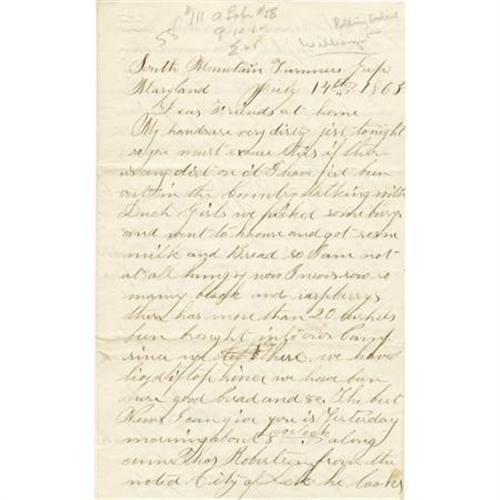 58
South Mountain Turners Gap
Maryland July 14th 1863
Dear Friends at home
My hands are very dirty jist tonight
so you must excuse this if ther
is any dirt on it I have jist been
out in the Country talking with
Duch Girls we picked some burys
and went to house and got some
milk and Bread so I am not
at all hungry now I never saw so
many black and raspberrys
there has more than 20 bushels
been brought into our Camp
since we here. we have
since we have been
here good bread and &c. The best
News I can give you is Yesterday
morning about 8 oclock along
came Thos Robertson from the
noted City of he looks